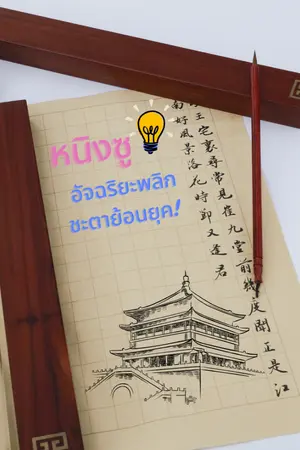 หนิงซู
อัจฉริยะพลิก
ชะตาย้อนยุค!
王宅裏尋常見崔九堂前幾度聞正是江
南好風景落花時節又逢君